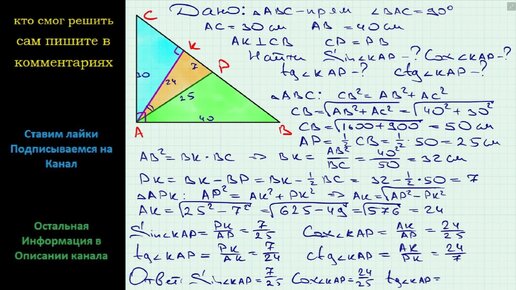 кто смог решить
сам пишите в
комментариях
Ставим лайки
Подписываемся на
Канал
Остальная
Информация в
Описании канала
C
K
P
30
24
7
25
40
A
B
Дано: △ABC - прям ∠BAC = 90°
AC = 30 см AB = 40 см
AK ⊥ CB CP = PB
Найти Sin∠KAP - ? Cos∠KAP - ?
tg∠KAP - ? ctg∠KAP - ?
△ABC: CB² = AB² + AC²
CB = √AB² + AC² = √40² + 30²
CB = √1600 + 900 = 50 см
AP = 1/2 CB = 1/2 · 50 = 25 см
AB² = BK · BC ⇒ BK = AB²/BC = 40²/50 = 32 см
PK = BK - BP = BK - 1/2 BC = 32 - 1/2 · 50 = 7
△APK: AP² = AK² + PK² ⇒ AK = √AP² - PK²
AK = √25² - 7² = √625 - 49 = √576 = 24
Sin∠KAP = PK/AP = 7/25 Cos∠KAP = AK/AP = 24/25
tg∠KAP = PK/AK = 7/24 Ctg∠KAP = AK/PK = 24/7
Ответ: Sin∠KAP = 7/25 Cos∠KAP = 24/25 tg∠KAP =